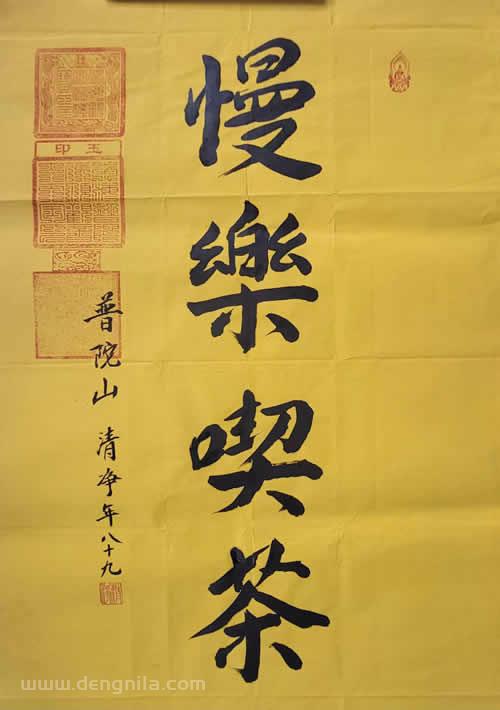 慢樂喫茶
玉印
普陀山 清净年八十九
www.dengnila.com